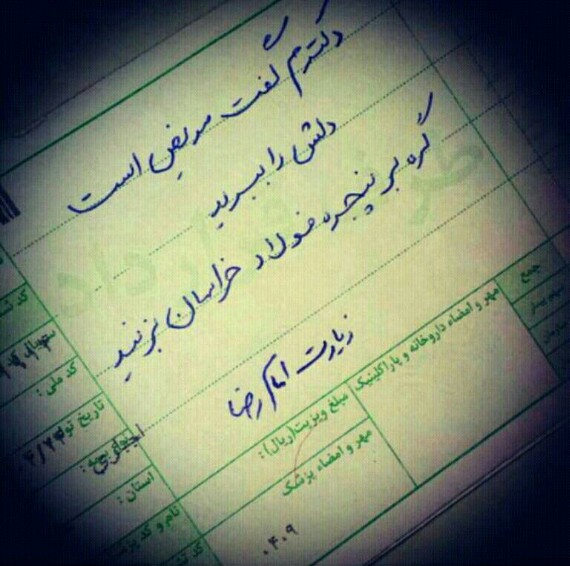 دکترم گفت مریض است
دلش را ببرید
گره بر پنجره فولاد خراسان بزنید
زیارت امام رضا
طرف قرارداد
جمع
مهر و امضاء داروخانه و پاراکلینیک
مبلغ ویزیت(ریال):
مهر و امضاء پزشک
کد ملی:
تاریخ تو
استان:
نام و کد پزش
۰۴۰۹